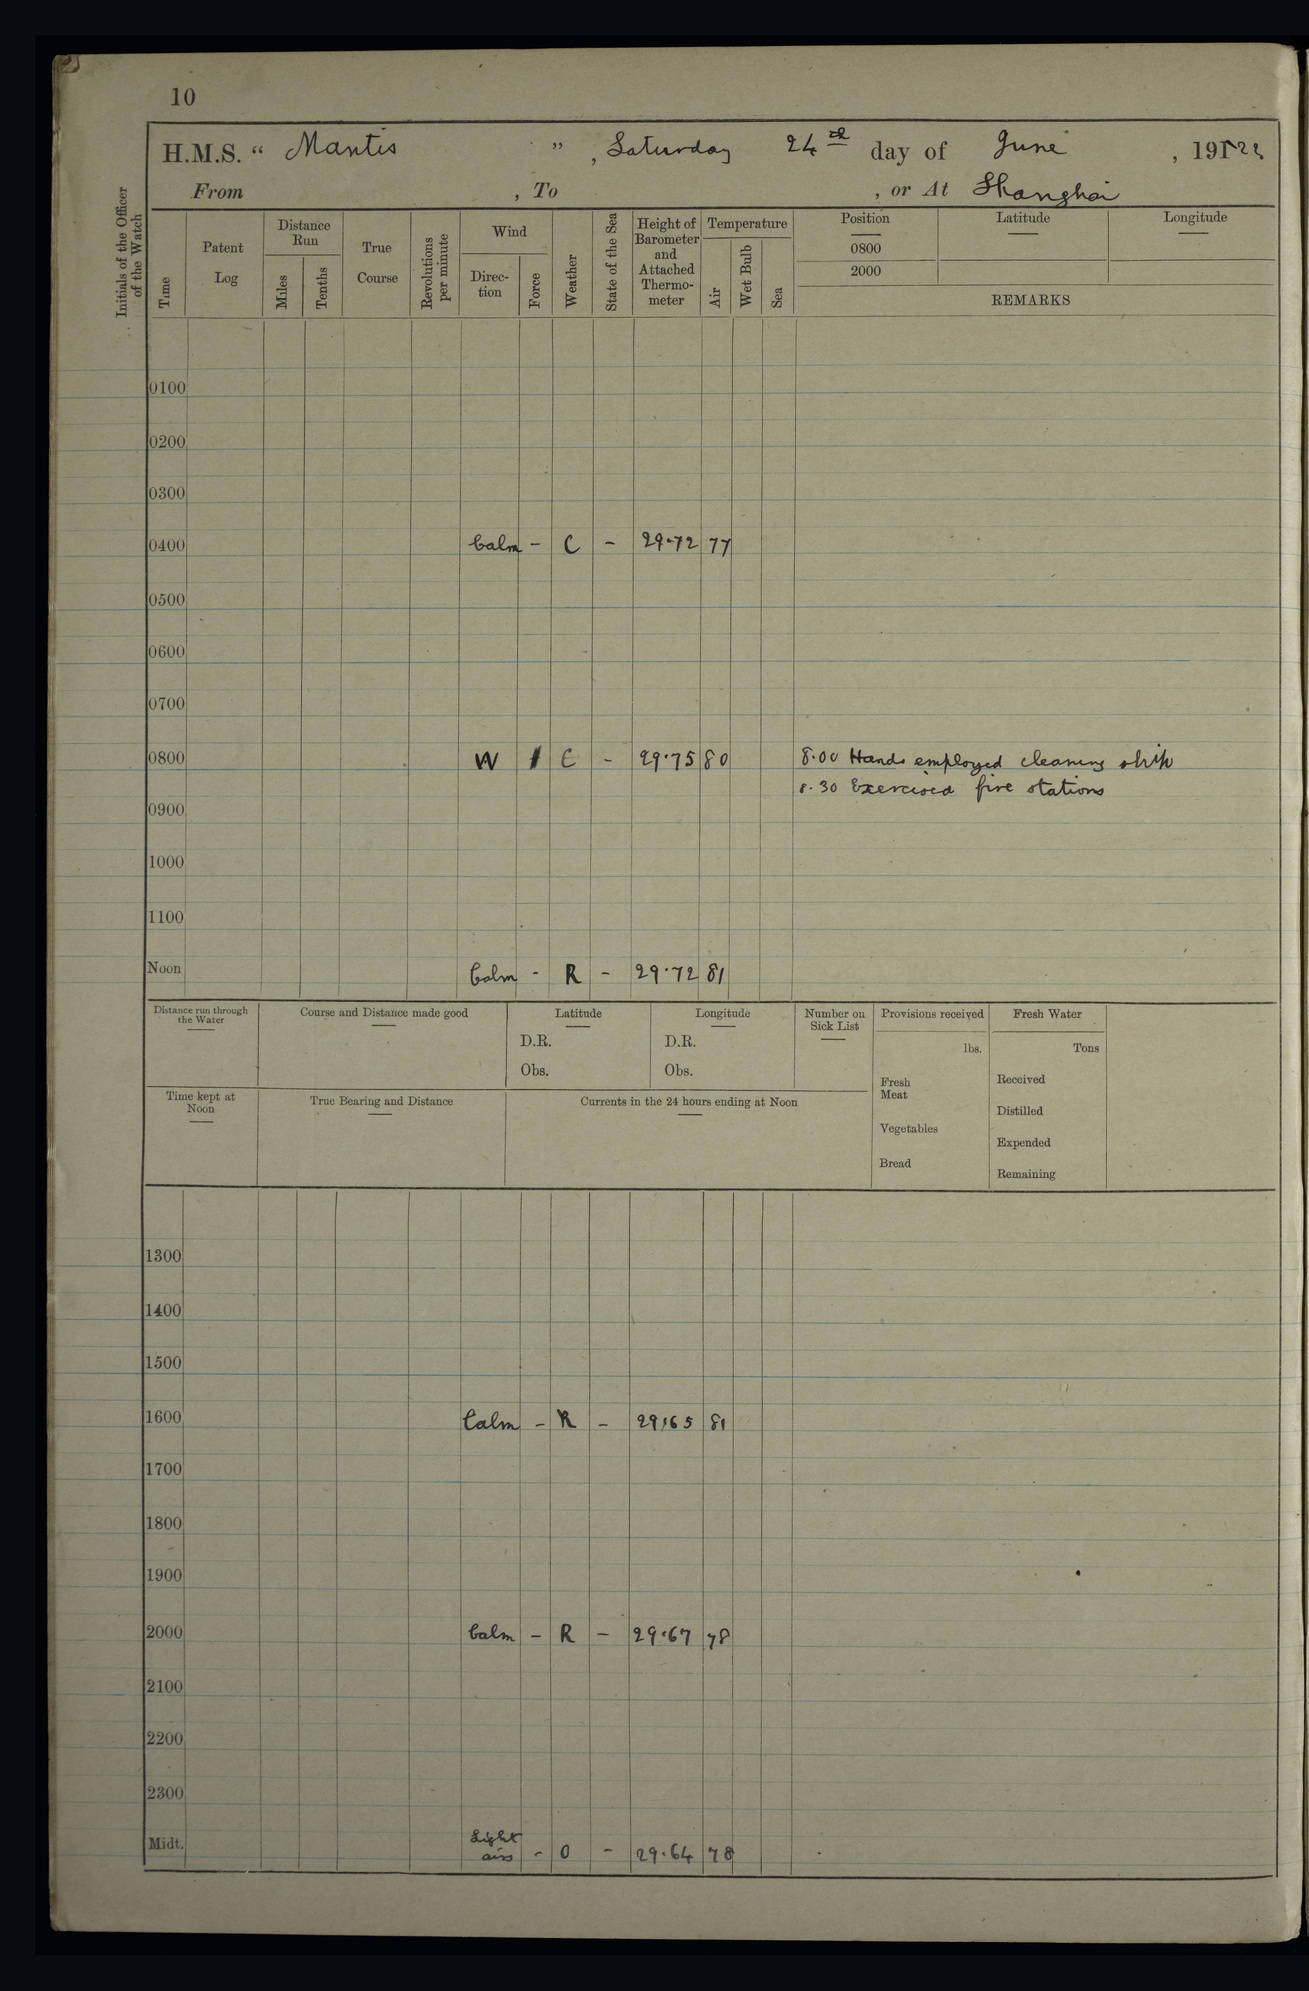 10
H.M.S. " Mantis " , Saturday 24th day of June , 1922
From , To , or At Shanghai
Initials of the Officer of the Watch
Time
Patent Log
Distance Run
Miles
Tenths
True Course
Revolutions per minute
Wind
Direc-tion
Force
Weather
State of the Sea
Height of Barometer and Attached Thermo-meter
Temperature
Air
Wet Bulb
Sea
Position
Latitude
Longitude
0800
2000
REMARKS
0100
0200
0300
0400 Calm - C - 29.72 77
0500
0600
0700
0800 W 1 C - 29.75 80 8.00 Hands employed cleaning ship
8.30 Exercised fire stations
0900
1000
1100
Noon Calm - R - 29.72 81
Distance run through the Water
Course and Distance made good
Latitude
D.R.
Obs.
Longitude
D.R.
Obs.
Number on Sick List
Provisions received
lbs.
Fresh Meat
Vegetables
Bread
Fresh Water
Tons
Received
Distilled
Expended
Remaining
Time kept at Noon
True Bearing and Distance
Currents in the 24 hours ending at Noon
1300
1400
1500
1600 Calm - R - 29.65 81
1700
1800
1900
2000 Calm - R - 29.67 78
2100
2200
2300
Midt. Light airs - O - 29.64 78